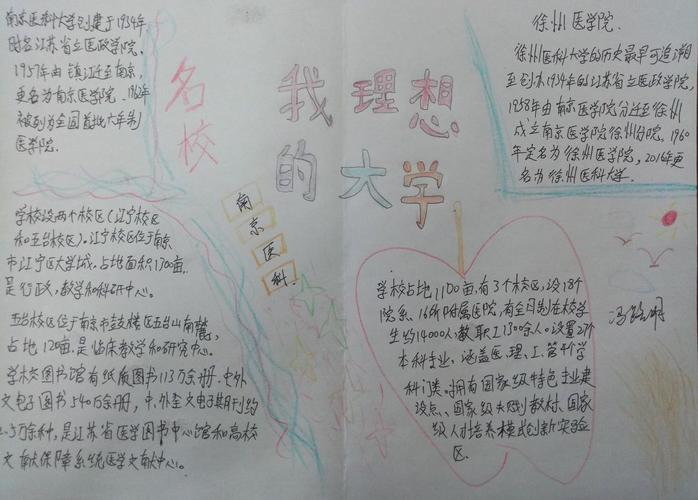 南京医科大学创建于1934年
时名江苏省立医政学院,
1957年由镇江迁至南京,
更名为南京医学院、1962年
被列为全国首批六年制
医学院.
名校
学校设两个校区(江宁校区
和五台校区)。江宁校区位于南京
市江宁区大学城.占地面积1700亩
是行政、教学和科研中心。
五台校区位于南京市鼓楼区五台山南麓,
占地120亩.是临床教学和研究中心.
学校图书馆有纸质图书113万余册.中外
文电子图书540万余册,中、外全文电子期刊约
2.3万余种,是江苏省医学图书中心馆和高校
文献保障系统医学文献中心。
我理想
的大学
南京医科
徐州医学院.
徐州医科大学的历史最早可追溯
至创办1934年的江苏省立医政学院,
1958年由南京医学院分迁至徐州
成立南京医学院徐州分院、1960
年定名为徐州医学院,2016年更
名为徐州医科大学.
学校占地1100亩,有3个校区,设18个
院系、16所附属医院,有全日制在校学
生约14000人,教职工1300余人。设置21个
本科专业、涵盖医、理、工、管等学
科门类。拥有国家级特色专业建
设点、国家级规划教材、国家
级人才培养模式创新实验
区.